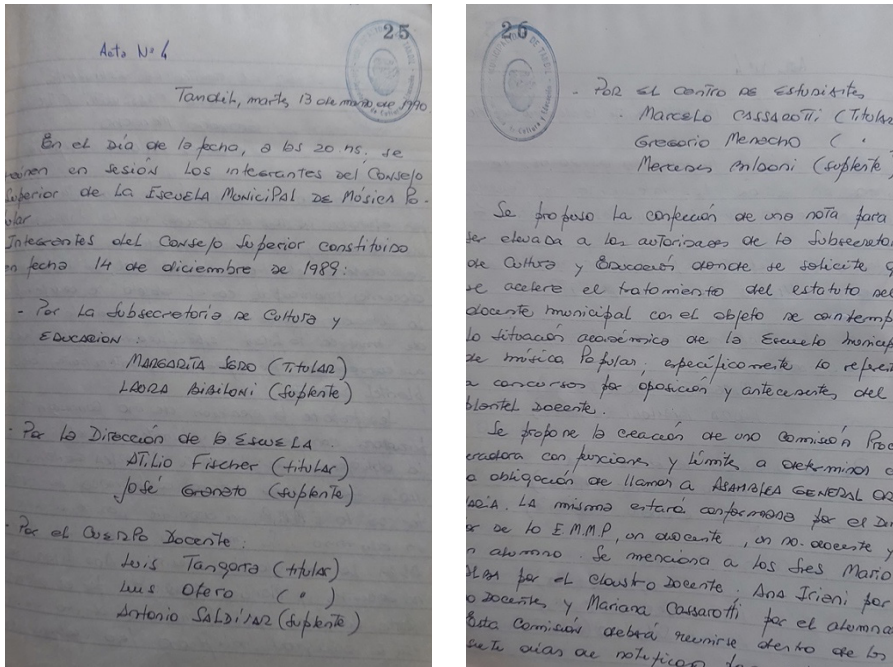 25
Acta Nº 4
Tandil, martes 13 de marzo de 1990
En el día de la fecha, a las 20 hs. se
reúnen en sesión los integrantes del Consejo
Superior de la Escuela Municipal de Música Po-
ular
Integrantes del Consejo Superior constituido
en fecha 14 de diciembre de 1989:
- Por la Subsecretoria de Cultura y
EDUCACION:
MARGARITA SGRO (TITULAR)
LAURA BIBILONI (Suplente)
- Por la Dirección de la Escuela
ATILIO Fischer (titular)
José Graneto (suplente)
- Por el Cuerpo Docente:
Luis Tangorra (titular)
Luis Otero ( " )
Antonio SALDÍVAR (suplente)
26
- POR EL Centro de Estudiantes
Marcelo CASSAROTTI (Titular
Gregorio Menacho ( "
Mercedes (suplente)
Se propuso la confección de una nota para
ser elevada a las autoridades de la Subsecreto
de Cultura y Educación donde se solicite q
se acelere el tratamiento del estatuto del
docente municipal con el objeto de contemp
la situación académica de la Escuela Municip
de música Popular, específicamente lo refere
a concursos por oposición y antecedentes del
plantel Docente.
Se propone la creación de una Comisión Proc
eradora con funciones y límites a determinar c
a obligación de llamar a ASAMBLEA GENERAL OR
NARIA. La misma estará conformada por el Di
or de la E.M.M.P, un docente, un no docente y
n alumno. Se menciona a los Sres Mario
por el claustro Docente, Ana Irieni por
o Docentes y Mariana Cassarotti por el alumna
Esta Comisión deberá reunirse dentro de los
siete días de notificada